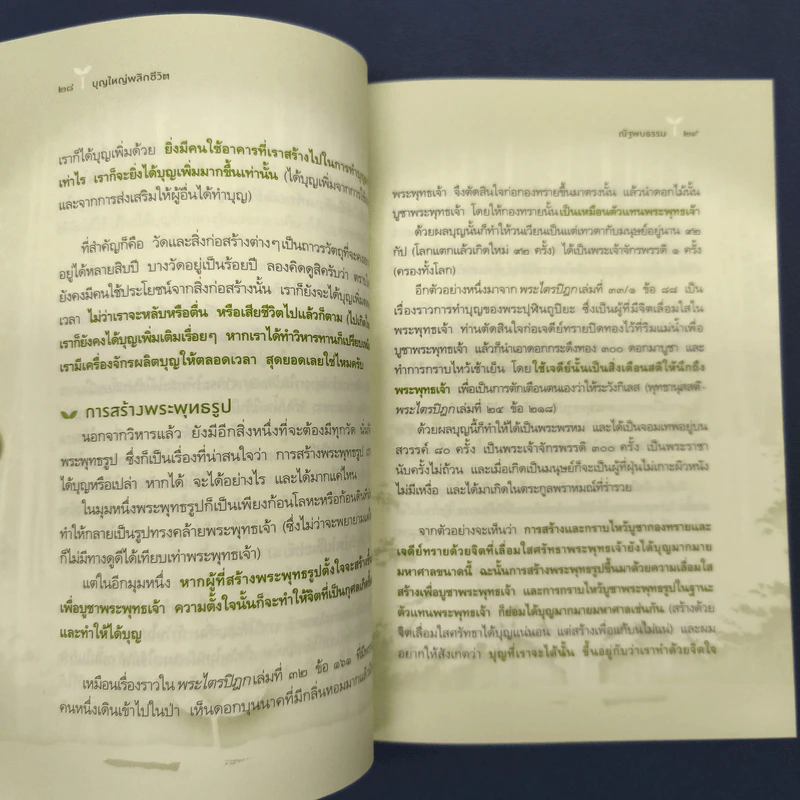 ๒๘ บุญใหญ่พลิกชีวิต
เราก็ได้บุญเพิ่มด้วย ยิ่งมีคนใช้อาคารที่เราสร้างไปในการทำบุญ
เท่าไร เราก็จะยิ่งได้บุญเพิ่มมากขึ้นเท่านั้น (ได้บุญเพิ่มจากการให้
และจากการส่งเสริมให้ผู้อื่นได้ทำบุญ)
ที่สำคัญก็คือ วัดและสิ่งก่อสร้างต่างๆ เป็นถาวรวัตถุที่จะคง
อยู่ได้หลายสิบปี บางวัดอยู่เป็นร้อยปี ลองคิดดูสิครับว่า ตราบใด
ยังคงมีคนใช้ประโยชน์จากสิ่งก่อสร้างนั้น เราก็ยังจะได้บุญเพิ่มตลอด
เวลา ไม่ว่าเราจะหลับหรือตื่น หรือเสียชีวิตไปแล้วก็ตาม (ไปเกิด
เราก็ยังคงได้บุญเพิ่มเติมเรื่อยๆ หากเราได้ทำวิหารทานก็เปรียบเหมือน
เรามีเครื่องจักรผลิตบุญให้ตลอดเวลา สุดยอดเลยใช่ไหมครับ
การสร้างพระพุทธรูป
นอกจากวิหารแล้ว ยังมีอีกสิ่งหนึ่งที่จะต้องมีทุกวัด นั่นก็
พระพุทธรูป ซึ่งก็เป็นเรื่องที่น่าสนใจว่า การสร้างพระพุทธรูป
ได้บุญหรือเปล่า หากได้ จะได้อย่างไร และได้มากแค่ไหน
ในมุมหนึ่งพระพุทธรูปก็เป็นเพียงก้อนโลหะหรือก้อนดินที่
ทำให้กลายเป็นรูปทรงคล้ายพระพุทธเจ้า (ซึ่งไม่ว่าจะพยายาม
ก็ไม่มีทางดูดีได้เทียบเท่าพระพุทธเจ้า)
แต่ในอีกมุมหนึ่ง หากผู้ที่สร้างพระพุทธรูปตั้งใจจะสร้าง
เพื่อบูชาพระพุทธเจ้า ความตั้งใจนั้นก็จะทำให้จิตที่เป็นกุศลเกิด
และทำให้ได้บุญ
เหมือนเรื่องราวใน พระไตรปิฎก เล่มที่ ๓๒ ข้อ ๑๖๑ ที่มี
คนหนึ่งเดินเข้าไปในป่า เห็นดอกบุนนาคที่มีกลิ่นหอมมาก
ณัฐพบธรรม ๒๙
พระพุทธเจ้า จึงตัดสินใจก่อกองทรายขึ้นมาตรงนั้น แล้วนำดอกไม้นั้น
บูชาพระพุทธเจ้า โดยให้กองทรายนั้นเป็นเหมือนตัวแทนพระพุทธเจ้า
ด้วยผลบุญนั้นก็ทำให้วนเวียนเป็นแต่เทวดากับมนุษย์อยู่นาน ๙๒
กัป (โลกแตกแล้วเกิดใหม่ ๙๒ ครั้ง) ได้เป็นพระเจ้าจักรพรรดิ ๑ ครั้ง
(ครองทั้งโลก)
อีกตัวอย่างหนึ่งมาจาก พระไตรปิฎก เล่มที่ ๓๓/๑ ข้อ ๘๘ เป็น
เรื่องราวการทำบุญของพระปุฬินถูปิยะ ซึ่งเป็นผู้ที่มีจิตเลื่อมใสใน
พระพุทธเจ้า ท่านตัดสินใจก่อเจดีย์ทรายปิดทองไว้ที่ริมแม่น้ำเพื่อ
บูชาพระพุทธเจ้า แล้วก็นำเอาดอกกระดึงทอง ๓๐๐ ดอกมาบูชา และ
ทำการกราบไหว้เช้าเย็น โดยใช้เจดีย์นั้นเป็นสิ่งเตือนสติให้นึกถึง
พระพุทธเจ้า เพื่อเป็นการตักเตือนตนเองว่าให้ระวังกิเลส (พุทธานุสสติ-
พระไตรปิฎก เล่มที่ ๒๕ ข้อ ๒๑๘)
ด้วยผลบุญนี้ก็ทำให้ได้เป็นพระพรหม และได้เป็นจอมเทพอยู่บน
สวรรค์ ๘๐ ครั้ง เป็นพระเจ้าจักรพรรดิ ๓๐๐ ครั้ง เป็นพระราชา
นับครั้งไม่ถ้วน และเมื่อเกิดเป็นมนุษย์ก็จะเป็นผู้ที่ฝุ่นไม่เกาะผิวหนัง
ไม่มีเหงื่อ และได้มาเกิดในตระกูลพราหมณ์ที่ร่ำรวย
จากตัวอย่างจะเห็นว่า การสร้างและกราบไหว้บูชากองทรายและ
เจดีย์ทรายด้วยจิตที่เลื่อมใสศรัทธาพระพุทธเจ้ายังได้บุญมากมาย
มหาศาลขนาดนี้ ฉะนั้นการสร้างพระพุทธรูปขึ้นมาด้วยความเลื่อมใส
สร้างเพื่อบูชาพระพุทธเจ้า และการกราบไหว้พระพุทธรูปในฐานะ
ตัวแทนพระพุทธเจ้า ก็ย่อมได้บุญมากมายมหาศาลเช่นกัน (สร้างด้วย
จิตเลื่อมใสศรัทธาได้บุญแน่นอน แต่สร้างเพื่อแก้บนไม่แน่) และผม
อยากให้สังเกตว่า บุญที่เราจะได้นั้น ขึ้นอยู่กับว่าเราทำด้วยจิตใจ